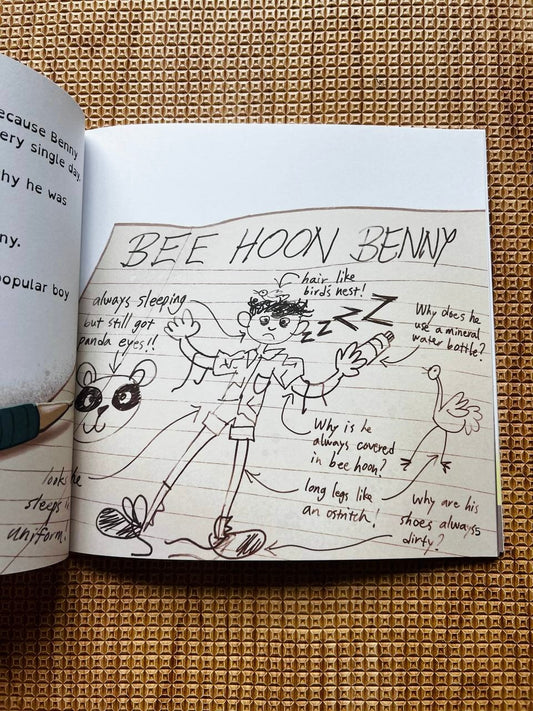 ecause Benny
ery single day.
hy he was
ny.
popular boy
BEE HOON BENNY
hair like
bird's nest!
always sleeping
but still got
panda eyes!!
zzZZZ
Why does he
use a mineral
water bottle?
Why is he
always covered
in bee hoon?
long legs like
an ostrich!
why are his
shoes always
dirty?
looks
sleeps
uniform!
5